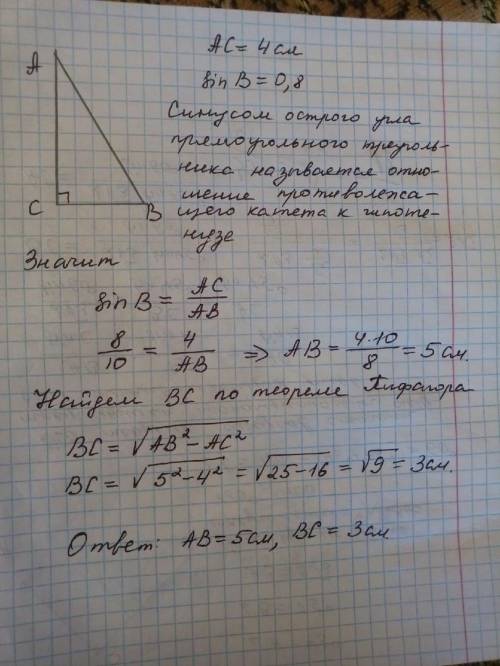 AC = 4 см
A
sin B = 0,8
Синусом острого угла
прямоугольного треуголь-
ника называется отно-
шение противолежа-
щего катета к гипоте-
нузе
C
B
Значит
sin B = AC/AB
8/10 = 4/AB ⇒ AB = 4·10/8 = 5 см.
Найдем BC по теореме Пифагора
BC = √(AB² − AC²)
BC = √(5² − 4²) = √(25 − 16) = √9 = 3 см.
Ответ: AB = 5 см, BC = 3 см